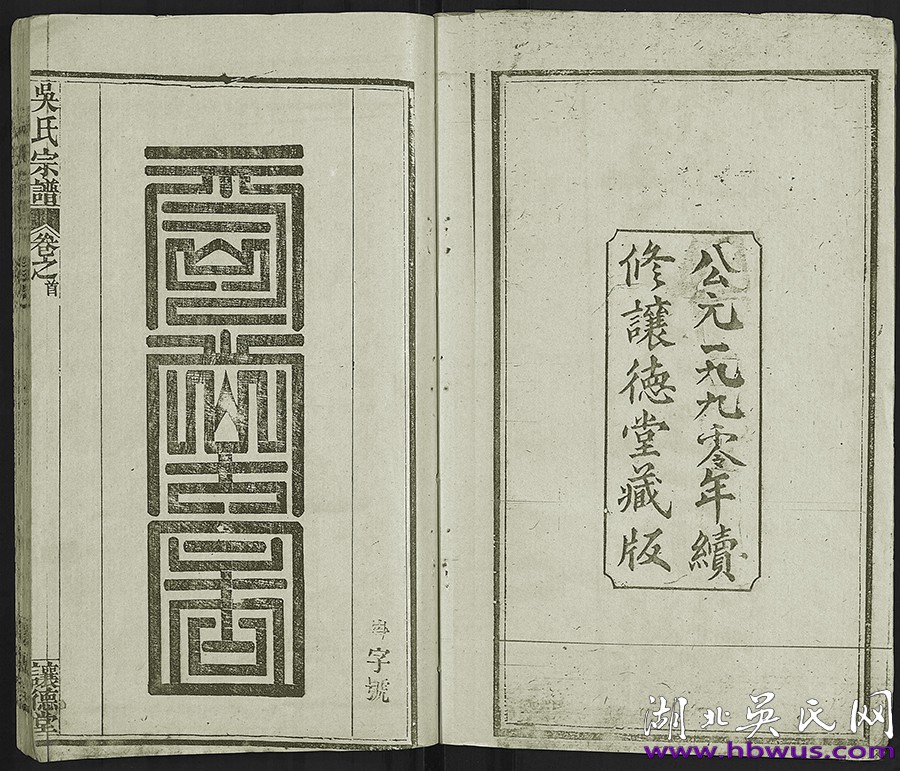 公元一九九零年續
修讓德堂藏版
字號
吳氏宗譜
卷之首
讓德堂
湖北吴氏网
www.hbwus.com